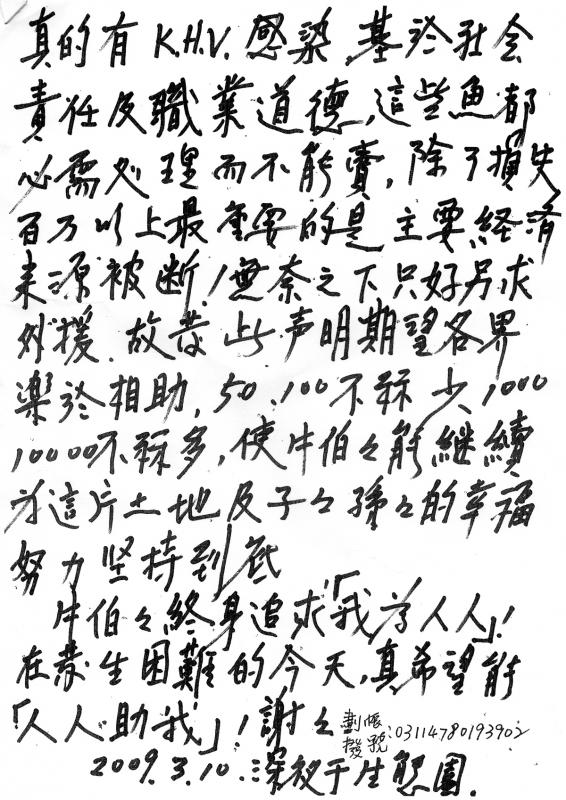 真的有 K.H.V. 感染,基於社会
責任及職業道德,這些魚都
必需処理而不能賣,除了損失
百万以上最重要的是主要経済
来源被断!無奈之下只好另求
外援.故発此声明期望各界
樂於相助,50.100不称少,1000
10000不称多,使牛伯々能継續
为這片土地及子々孫々的幸福
努力坚持到底
牛伯々終身追求「我为人人」!
在發生困難的今天,真希望能
「人人助我」!謝々 劃撥帳號:03114780193902
2009.3.10.深夜于生態園.